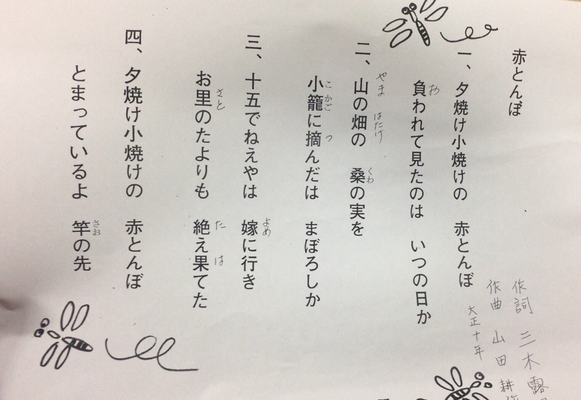 赤とんぼ
一、夕焼け小焼けの　赤とんぼ
負われて見たのは　いつの日か
お
二、山の畑の　桑の実を
やま　はたけ　くわ
小籠に摘んだは　まぼろしか
こ　かご　つ
三、十五でねえやは　嫁に行き
よめ
お里のたよりも　絶え果てた
さと　た　は
四、夕焼け小焼けの　赤とんぼ
とまっているよ　竿の先
さお
作詞　三木露
作曲　山田耕
大正十年